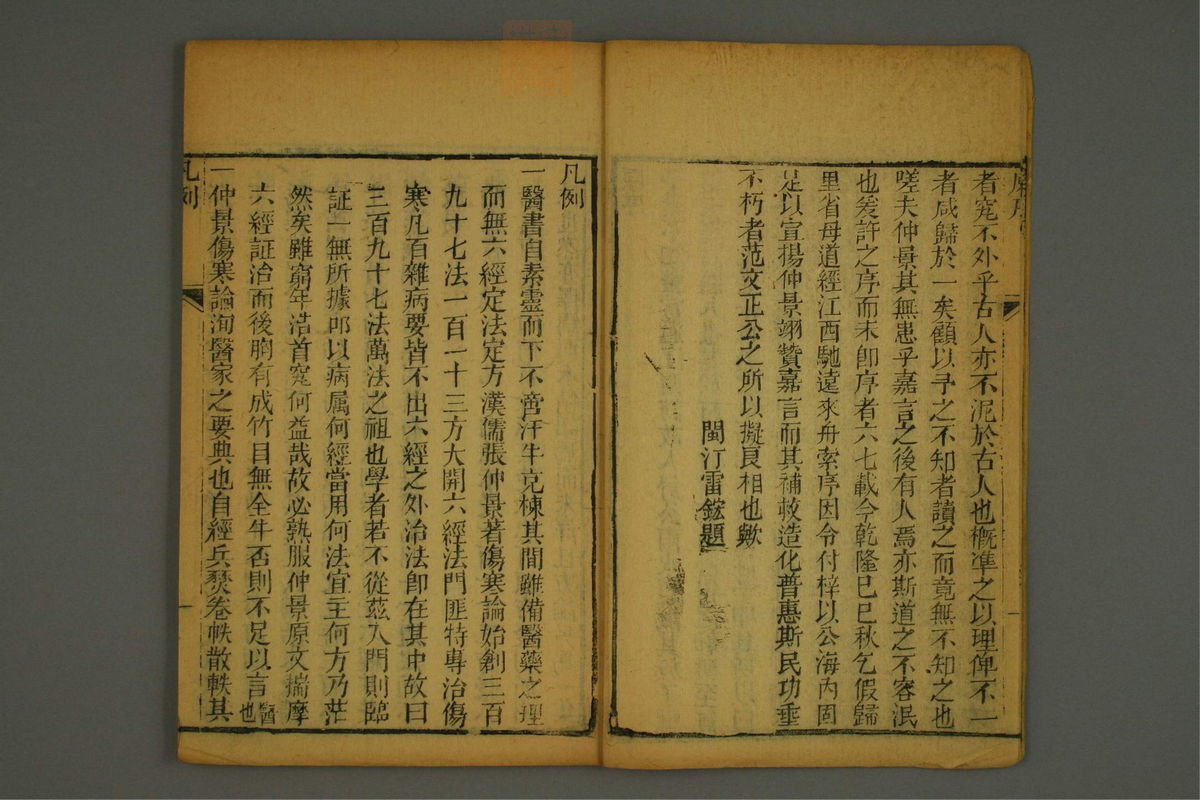 者究不外乎古人亦不泥於古人也概準之以理俾不一
者咸歸於一矣顧以予之不知者讀之而竟無不知之也
嗟夫仲景其無患乎嘉言之後有人焉亦斯道之不容泯
也爰許之序而未即序者六七載今乾隆巳巳秋乞假歸
里省母道經江西馳遠來舟索序因令付梓以公海內固
足以宣揚仲景翊贊嘉言而其補救造化普惠斯民功垂
不朽者范文正公之所以擬良相也歟
閩汀雷鋐題
凡例
一醫書自素靈而下不啻汗牛充棟其間雖備醫藥之理
而無六經定法定方漢儒張仲景著傷寒論始創三百
九十七法一百一十三方大開六經法門匪特專治傷
寒凡百雜病要皆不出六經之外治法卽在其中故曰
三百九十七法萬法之祖也學者若不從茲入門則臨
証一無所據叩以病属何經當用何法宜主何方乃茫
然矣雖窮年浩首究何益哉故必熟服仲景原文揣摩
六經証治而後胸有成竹目無全牛否則不足以言醫也
一仲景傷寒論洵醫家之要典也自經兵燹卷帙散軼其
凡例